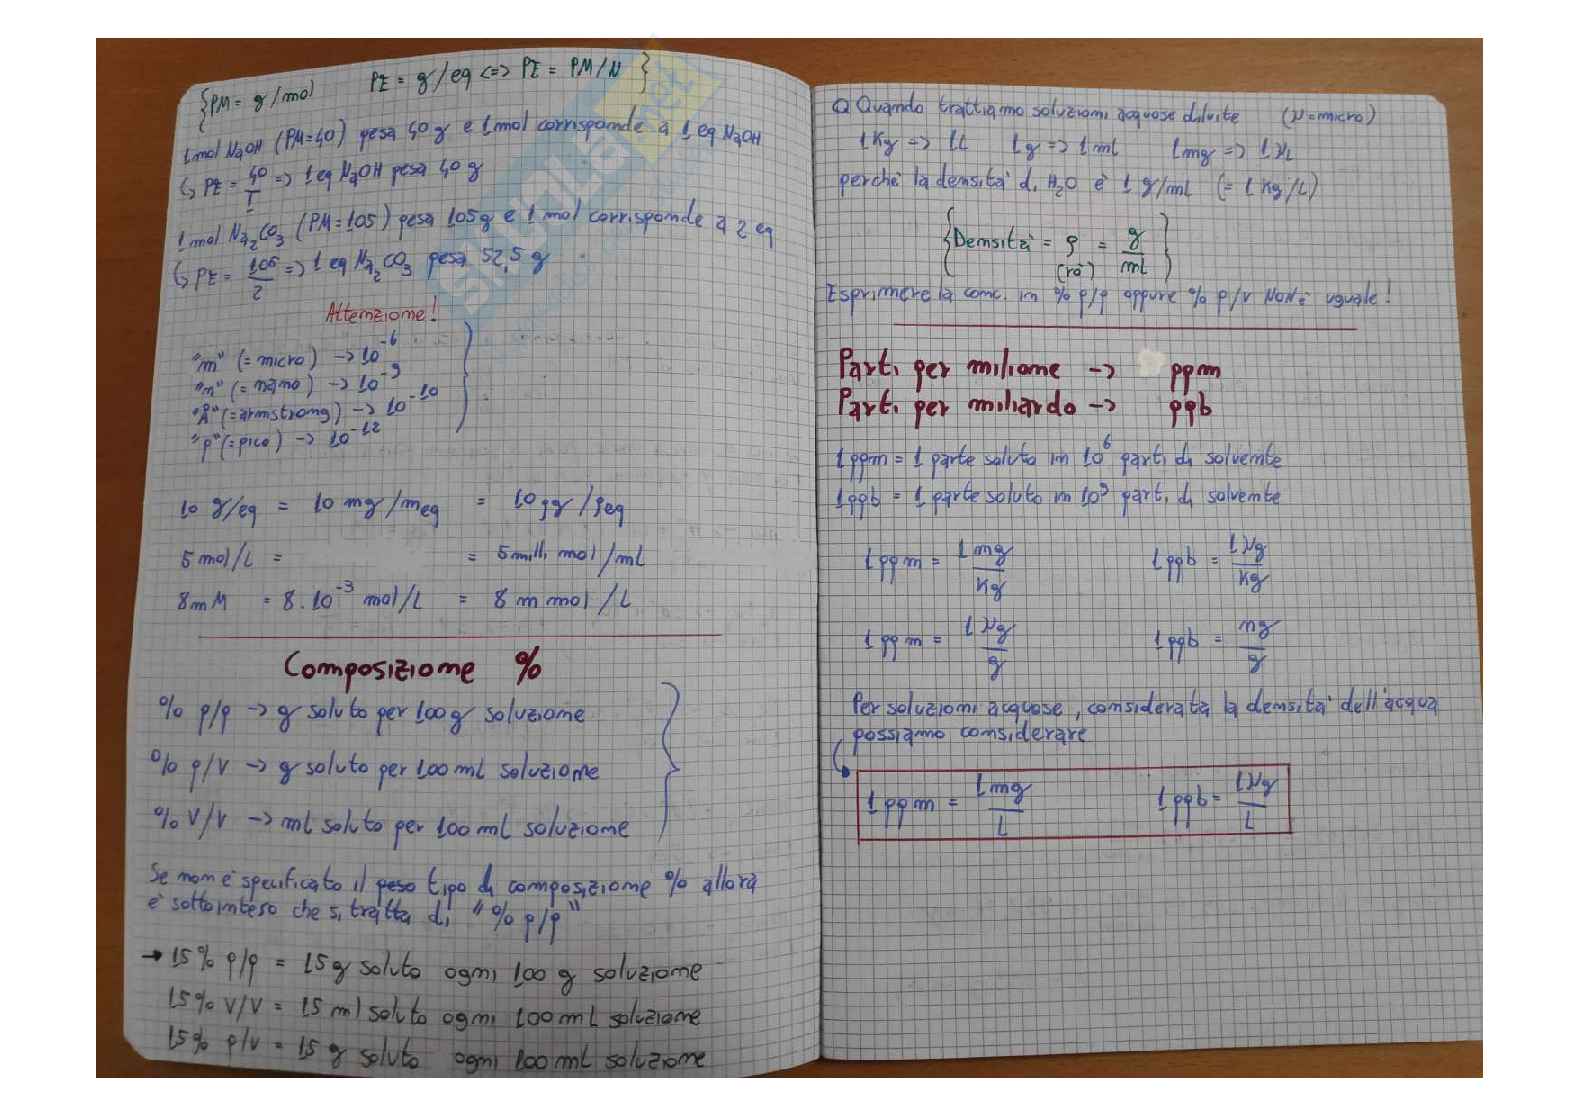 {PM = g/mol     PE = g/eq <=> PE = PM/N }
1 mol NaOH (PM=40) pesa 40 g e 1mol corrisponde a 1 eq NaOH
↳ PE = 40/1 => 1 eq NaOH pesa 40 g
1 mol Na2CO3 (PM=105) pesa 105g e 1 mol corrisponde a 2 eq
↳ PE = 105/2 => 1 eq Na2CO3 pesa 52,5 g
Attenzione!
"m" (= micro) -> 10^-6
"n" (= nano) -> 10^-9
"Å" (= armstrong) -> 10^-10
"p" (= pico) -> 10^-12
10 g/eq = 10 mg/meq = 10 μg/μeq
5 mol/L = = 5 milli mol/mL
8mM = 8.10^-3 mol/L = 8 m mol/L
Composizione %
% p/p -> g soluto per 100g soluzione
% p/v -> g soluto per 100 mL soluzione
% v/v -> mL soluto per 100 mL soluzione
Se non è specificato il peso tipo di composizione % allora
è sottointeso che si tratta di "% p/p"
→ 15% p/p = 15g soluto ogni 100 g soluzione
15% v/v = 15 ml soluto ogni 100 mL soluzione
15% p/v = 15 g soluto ogni 100 mL soluzione
Quando trattiamo soluzioni acquose diluite (μ=micro)
1Kg => 1L   1g => 1 mL   1mg => 1μL
perchè la densità di H2O è 1 g/ml (= 1 Kg/L)
{Densità = ρ = g/mL}
(rò)
Esprimere la conc. in % p/p oppure % p/v NON è uguale!
Parti per milione -> ppm
Parti per miliardo -> ppb
1 ppm = 1 parte soluto in 10^6 parti di solvente
1 ppb = 1 parte soluto in 10^9 parti di solvente
1 ppm = 1 mg/Kg   1 ppb = 1 μg/Kg
1 ppm = 1 μg/g   1 ppb = ng/g
Per soluzioni acquose, considerata la densità dell'acqua
possiamo considerare
1 ppm = 1 mg/L   1 ppb = 1 μg/L